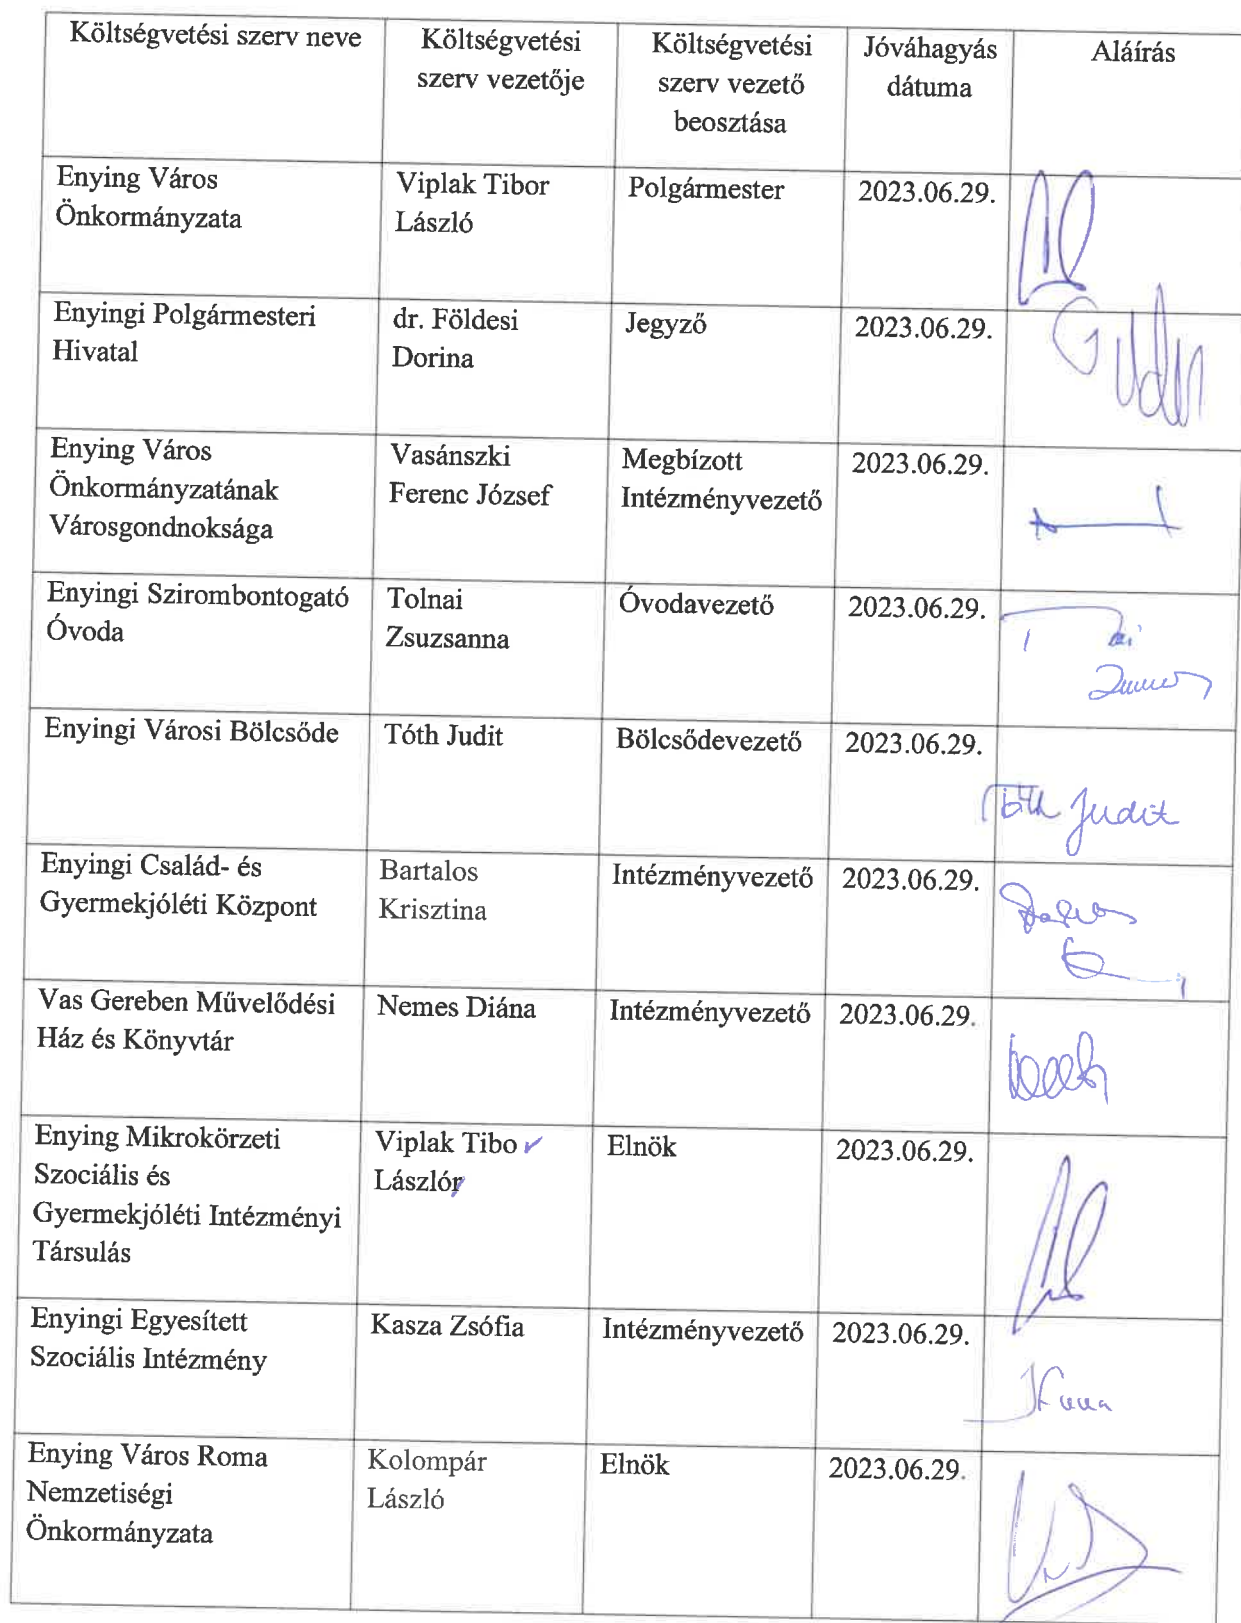 Költségvetési szerv neve
Költségvetési
szerv vezetője
Költségvetési
szerv vezető
beosztása
Jóváhagyás
dátuma
Aláírás
Enying Város
Önkormányzata
Viplak Tibor
László
Polgármester
2023.06.29.
Enyingi Polgármesteri
Hivatal
dr. Földesi
Dorina
Jegyző
2023.06.29.
Enying Város
Önkormányzatának
Városgondnoksága
Vasánszki
Ferenc József
Megbízott
Intézményvezető
2023.06.29.
Enyingi Szirombontogató
Óvoda
Tolnai
Zsuzsanna
Óvodavezető
2023.06.29.
Enyingi Városi Bölcsőde
Tóth Judit
Bölcsődevezető
2023.06.29.
Tóth Judit
Enyingi Család- és
Gyermekjóléti Központ
Bartalos
Krisztina
Intézményvezető
2023.06.29.
Vas Gereben Művelődési
Ház és Könyvtár
Nemes Diána
Intézményvezető
2023.06.29.
Enying Mikrokörzeti
Szociális és
Gyermekjóléti Intézményi
Társulás
Viplak Tibo
Lászlór
Elnök
2023.06.29.
Enyingi Egyesített
Szociális Intézmény
Kasza Zsófia
Intézményvezető
2023.06.29.
Enying Város Roma
Nemzetiségi
Önkormányzata
Kolompár
László
Elnök
2023.06.29.